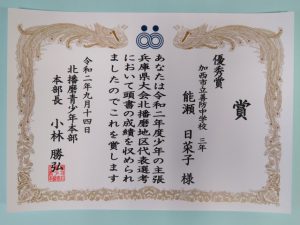 賞
優秀賞
加西市立善防中学校 三年
能瀬 日菜子 様
あなたは令和二年度少年の主張
兵庫県大会北播磨地区代表選考
において頭書の成績を収められ
ましたのでこれを賞します
令和二年九月十四日
北播磨青少年本部
本部長 小林 勝弘